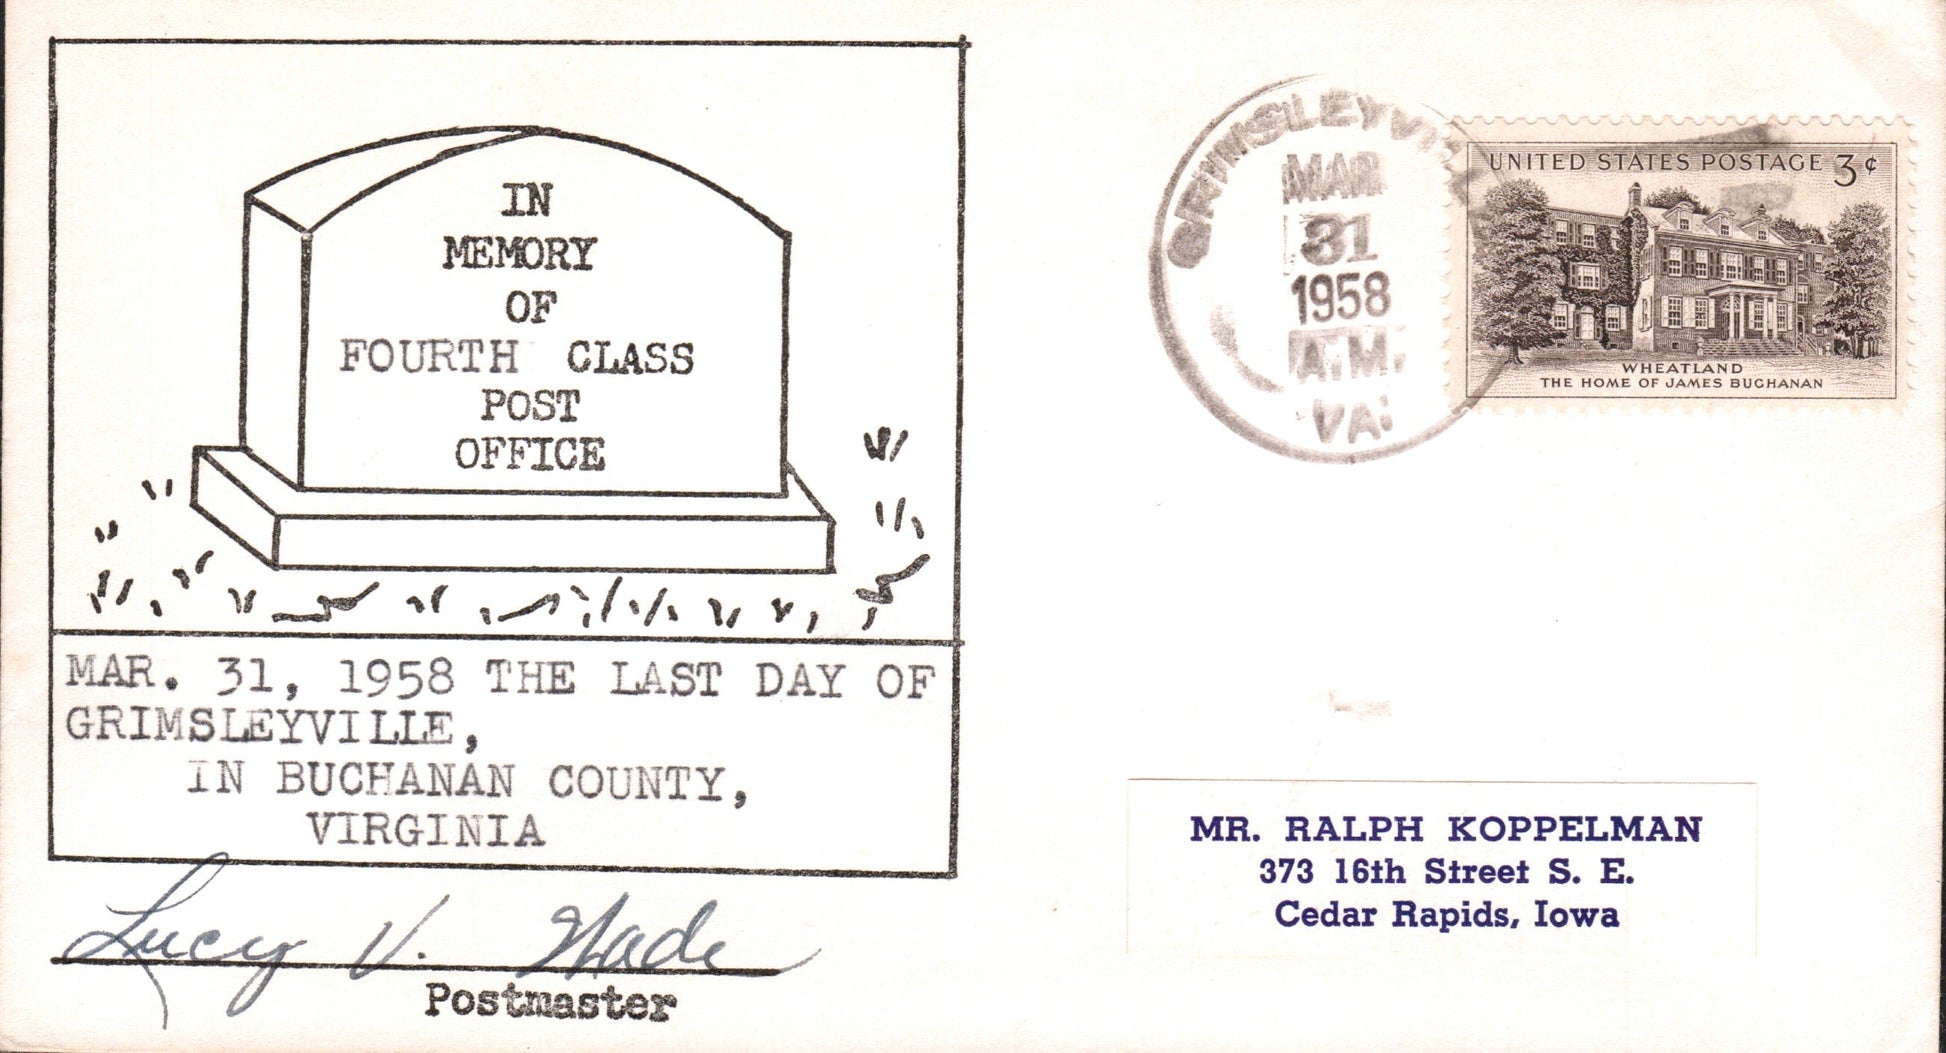 IN
MEMORY
OF
FOURTH CLASS
POST
OFFICE
MAR. 31, 1958 THE LAST DAY OF
GRIMSLEYVILLE,
IN BUCHANAN COUNTY,
VIRGINIA
Lucy V. Wade
Postmaster
GRIMSLEYVILLE
MAR
31
1958
A.M.
VA.
UNITED STATES POSTAGE 3¢
WHEATLAND
THE HOME OF JAMES BUCHANAN
MR. RALPH KOPPELMAN
373 16th Street S. E.
Cedar Rapids, Iowa